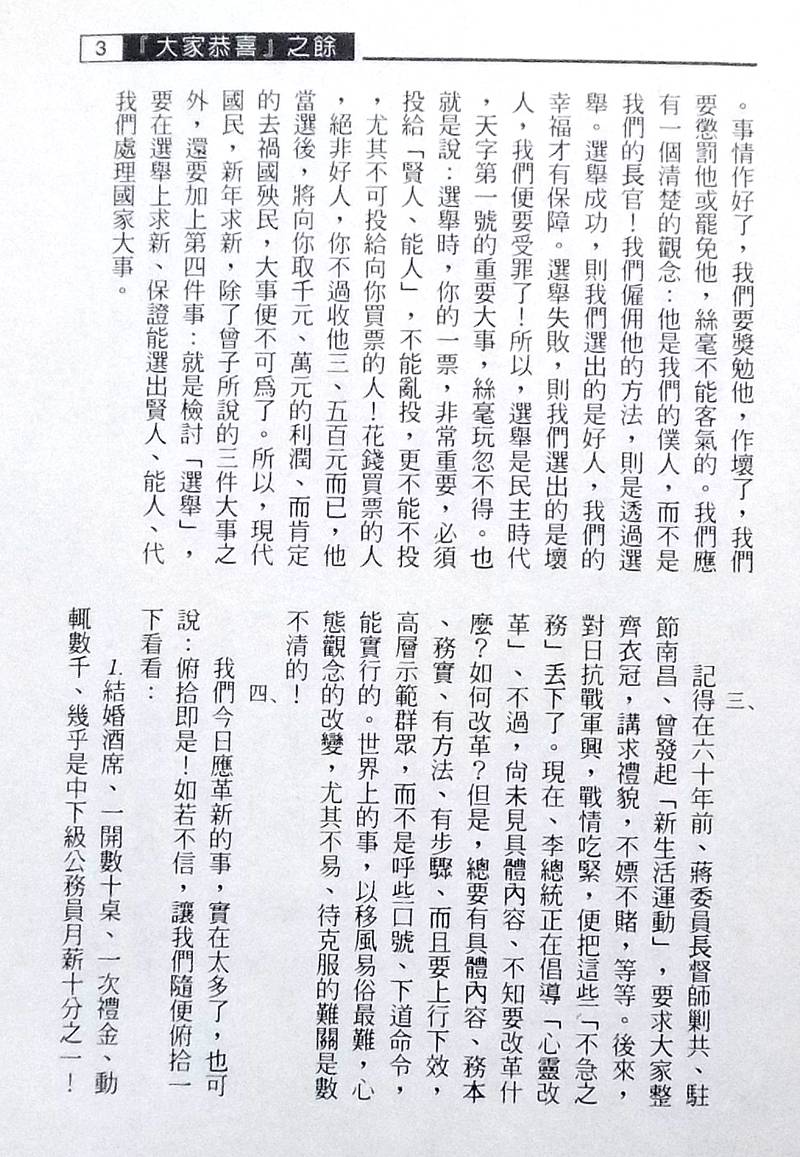 3 『大家恭喜』之餘
。事情作好了，我們要獎勉他，作壞了，我們
要懲罰他或罷免他，絲毫不能客氣的。我們應
有一個清楚的觀念：他是我們的僕人，而不是
我們的長官！我們僱佣他的方法，則是透過選
舉。選舉成功，則我們選出的是好人，我們的
幸福才有保障。選舉失敗，則我們選出的是壞
人，我們便要受罪了！所以，選舉是民主時代
，天字第一號的重要大事，絲毫玩忽不得。也
就是說：選舉時，你的一票，非常重要，必須
投給「賢人、能人」，不能亂投，更不能不投
，尤其不可投給向你買票的人！花錢買票的人
，絕非好人，你不過收他三、五百元而已，他
當選後，將向你取千元、萬元的利潤、而肯定
的去禍國殃民，大事便不可爲了。所以，現代
國民，新年求新，除了曾子所說的三件大事之
外，還要加上第四件事：就是檢討「選舉」，
要在選舉上求新、保證能選出賢人、能人、代
我們處理國家大事。
三、
記得在六十年前、蔣委員長督師剿共、駐
節南昌、曾發起「新生活運動」，要求大家整
齊衣冠，講求禮貌，不嫖不賭，等等。後來，
對日抗戰軍興，戰情吃緊，便把這些「不急之
務」丟下了。現在、李總統正在倡導「心靈改
革」、不過，尚未見具體內容、不知要改革什
麼？如何改革？但是，總要有具體內容、務本
、務實、有方法、有步驟、而且要上行下效，
高層示範群眾，而不是呼些口號、下道命令，
能實行的。世界上的事，以移風易俗最難，心
態觀念的改變，尤其不易、待克服的難關是數
不清的！
四、
我們今日應革新的事，實在太多了，也可
說：俯拾即是！如若不信，讓我們隨便俯拾一
下看看：
1.結婚酒席、一開數十桌、一次禮金、動
輒數千、幾乎是中下級公務員月薪十分之一！